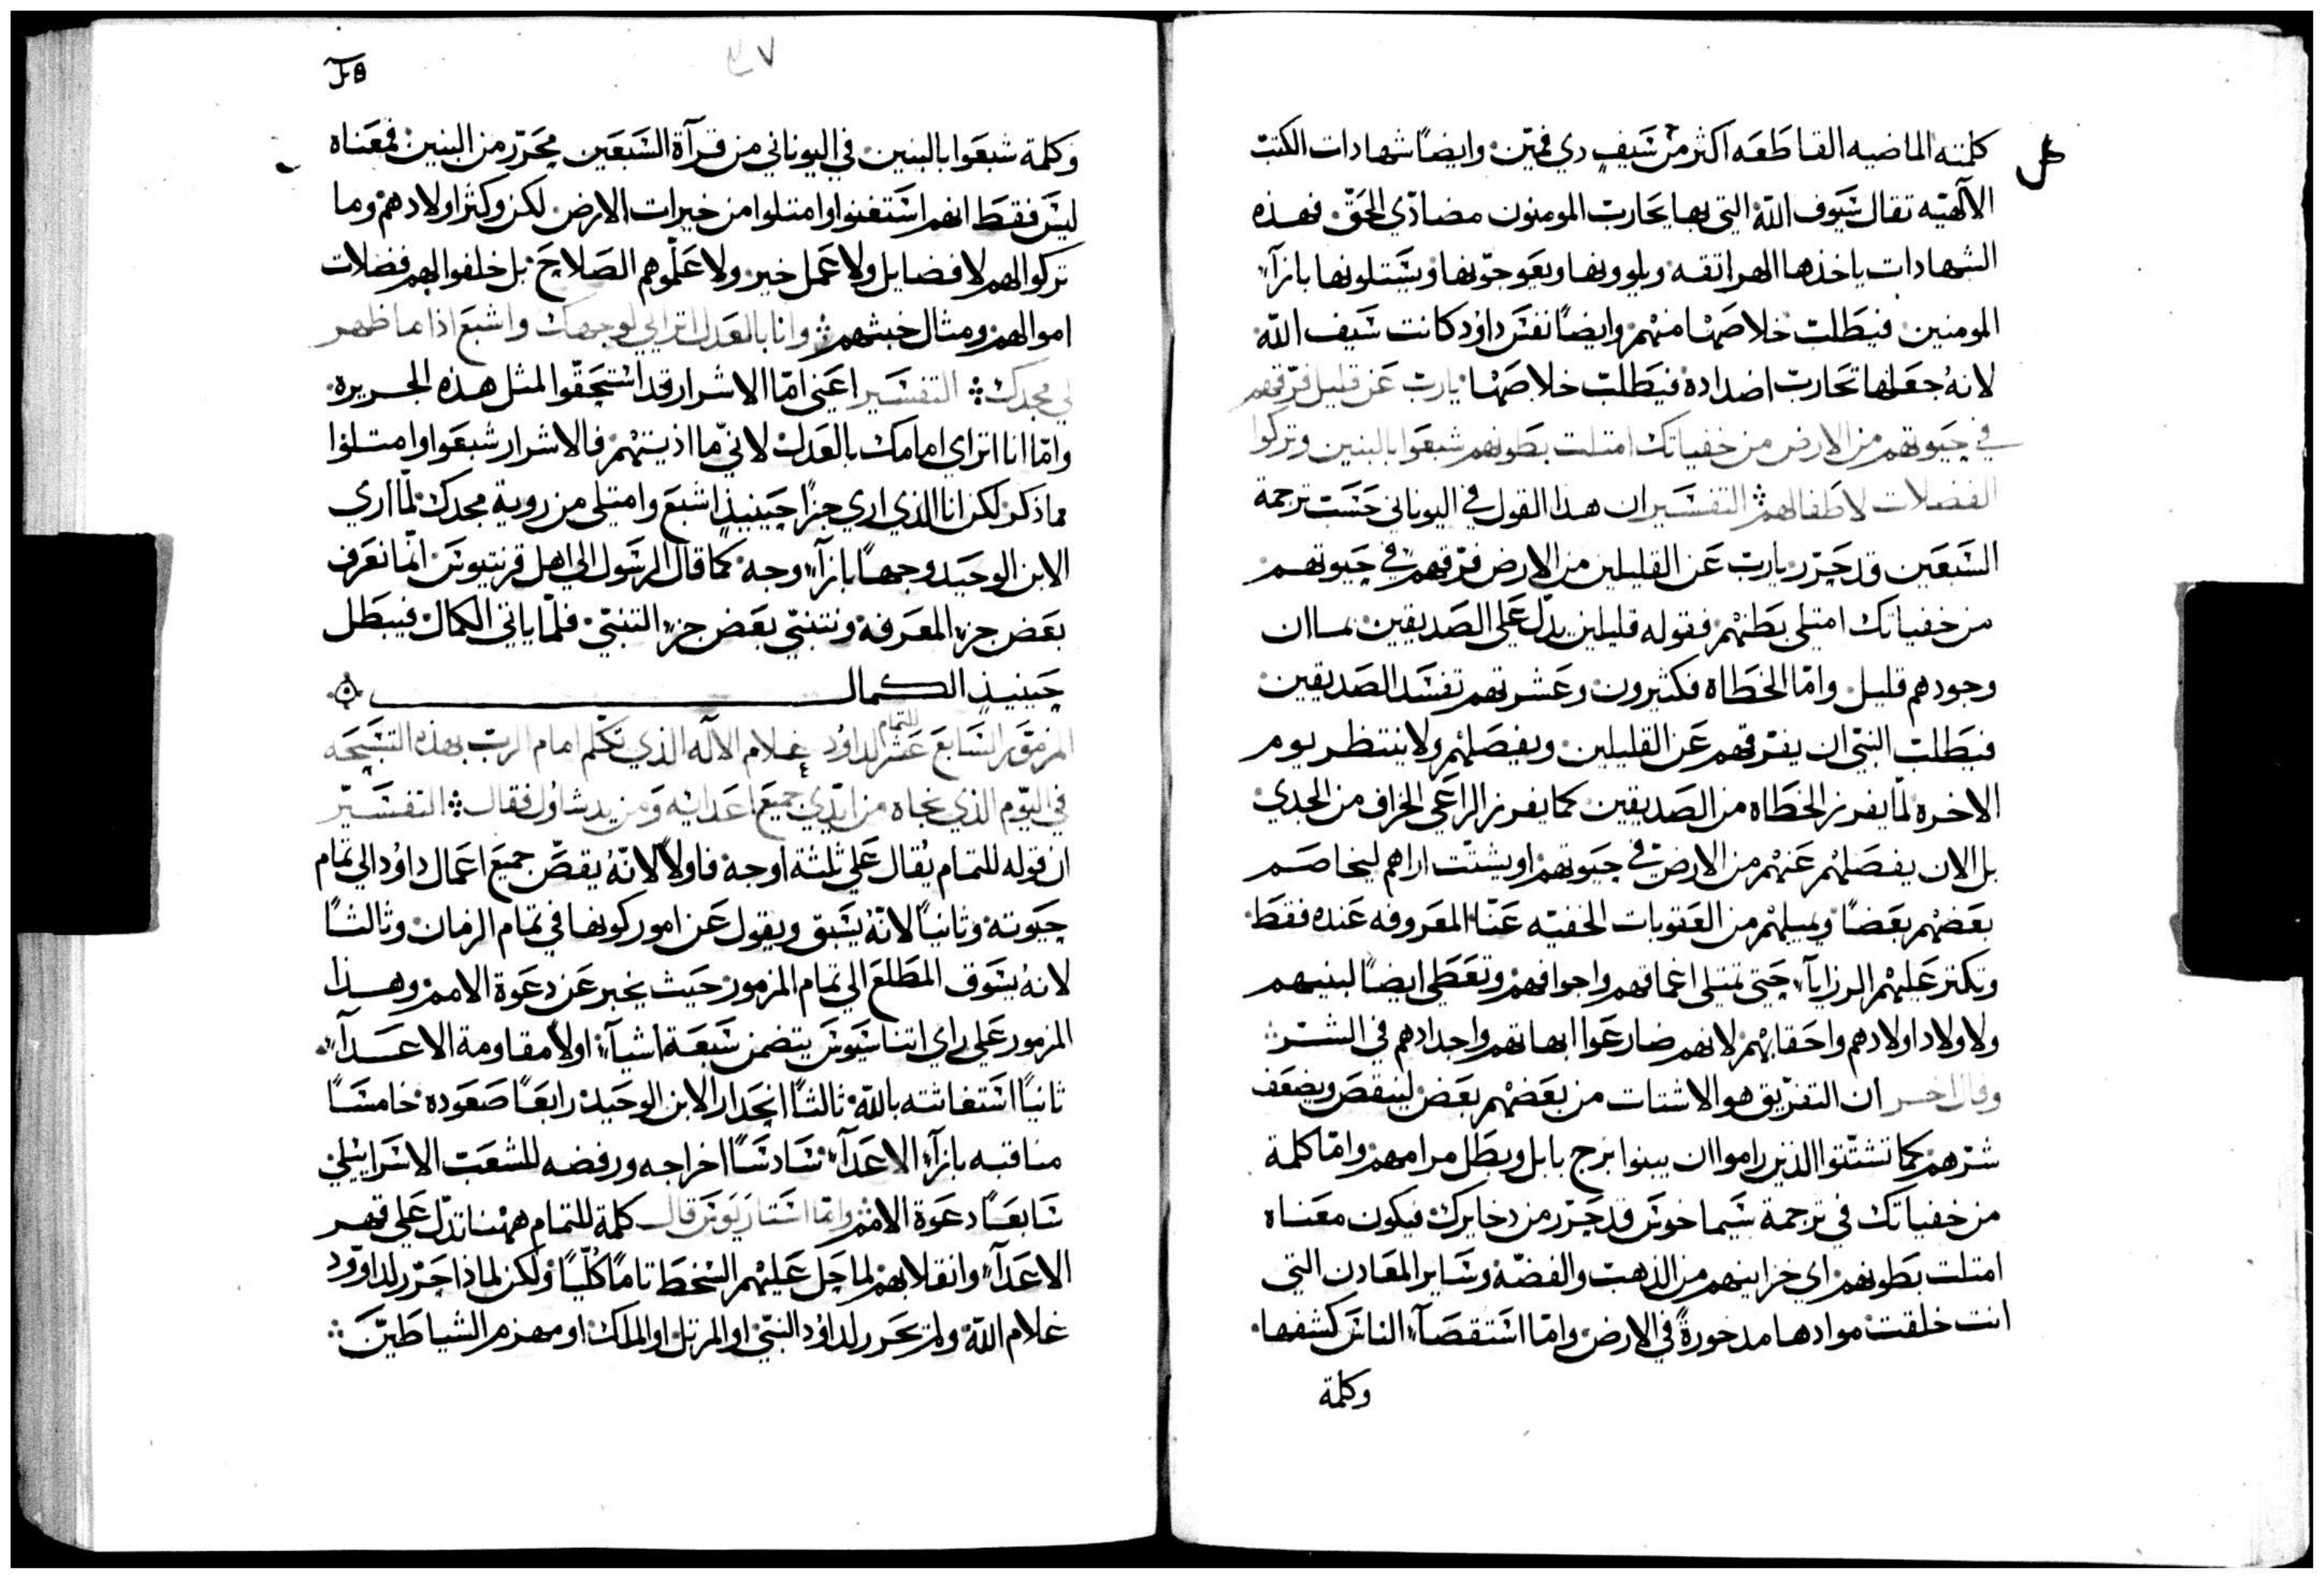 كلمته الماضيه القاطعه اكثر من سَيفٍ ذي فمّين وايضًا شهادات الكتب
الآلهيّه تقال سَيوف اللّه التي بها يحَارب المومنون مضادّي الحقّ فهذه
الشهادات ياخذها الهراتقه ويلوونها ويعَوجّونها ويسَتلونها بازآء
المومنين فيطَلب خلاصَها منهم وايضًا نفسَ داوُد كانت سَيف اللّه
لانهُ جعَلها تحَارب اضداده فيطَلب خلاصَها يارب عَن قليل فرّقهم
في حَيوتهم من الارض من خفياتك امتلت بطَونهم شبعَوا بالبنين وتركوا
الفضلات لاطَفالهم التفسَير ان هذا القول في اليوناني حَسَب ترجمة
السَبعَين قد حَرّر يارب عَن القليلين من الارض فرّقهم في حَيوتهم
من خفياتك امتلى بطَنهم فقوله قليلين يدّل عَلى الصَديقين بما ان
وجودهم قليل وامّا الخطَاه فكثيرون وعَشرتهم تفسَد الصَديقين
فيطَلب النبّي ان يفرّقهم عَن القليلين ويفصَلهم ولا ينتظر يوم
الاخره لمّا يفرز الخطَاه من الصَديقين كما يفرز الراعَي الخراف من الجدي
بل الان يفصَلهم عَنهم من الارض في حَيوتهم او يشتّت اراهم ليخاصَم
بعَضهم بعَضًا ويميلهم من العَقوبات الخفيّه عَنّا المعَروفه عَنده فقطَ
وتكثر عَليهم الرزايآء حَتى تمتلى اعماقهم واجوافهم وتعَطَى ايضًا لبنيهم
ولاولاد اولادهم واحَقابهم لانهم ضارعَوا ابهاتهم واجدادهم في الشّر
وقال اخر ان التفريّق هو الاشتات من بعَضهم بعَض لينقصَ ويضعَف
شرّهم كما تشتّتوا الذين راموا ان يبنوا برج بابل وبطَل مرامهم وامّا كلمة
من خفياتك في ترجمة سَيماخوسَ قد حَرّر من دخايرك فيكون معَناه
امتلت بطَونهم اي خزاينهم من الذهب والفضّة وسَاير المعَادن التي
انت خلقت موادها مدخورةً في الارض وامّا اسَتقصَآء الناسَ كشفها
وكلمة
وكلمة شبعَوا بالبنين في اليوناني من قرآة السَبعَين محَرّر من البنين فمعَناه
ليسَ فقطَ انهم اسَتغنوا وامتلوا من خيرات الارض لكن وكثر اولادهم وما
تركوا لهم لا فضايل ولا عَمل خير ولا عَلّموهم الصَلاحَ بل خلفوا لهم فضلات
اموالهم ومثال خبثهم وانا بالعَدل اتراي لوجهك واشبعَ اذا ما ظهر
لي مجدك التفسَير اعَني امّا الاشرار قد اسَتحَقّوا لمثل هذه الجريرة
وامّا انا اتراي امامك بالعَدل لانيّ ما اذيتهم فالاشرار شبعَوا وامتلوا
مما ذكر لكن انا الذي اري جزًا حَينيذٍ اشبعَ وامتلى من روية مجدك لمّا اري
الابن الوحَيد وجهًا بازآء وجه كما قال الرسَول الي اهل قرنتيوسَ انّما نعَرف
بعَض جزء المعَرفة ونتنبّي بعَض جزء التنبّي فلمّا ياتي الكمال فيبطَل
حَينيذٍ الكمال
المزمور السَابعَ عَشر للتمام لداوُد غلام الآله الذي تكلّم امام الرب بهذه التسَبحَه
في اليّوم الذي نجاه من ايدّي جميعَ اعَدائه وَمن يد شاوُل فقال التفسَيّر
ان قوله للتمام يُقال عَلي ثلثة اوجه فاولاً لانّهُ يقصَّ جميعَ اعَمال داوُد الي تمام
حَيوته وثانيًا لانّهُ يسَبق ويقول عَن امور كونها في تمام الزمان وثالثًا
لانهُ يشوَق المطَلعَ الي تمام المزمور حَيث يخبر عَن دعَوة الامم وهذا
المزمور عَلي راي اتناسَيوسَ يتضمن سَبعَة اشيآء اولاً مقاومة الاعَدآء
ثانيًا اسَتغاثته باللّه ثالثًا انحَدار الابن الوحَيد رابعًا صَعَوده خامسًا
مناقبه بازآء الاعَدآء سَادسًا اخراجه ورفضه للشعَب الاسَرايئلي
سَابعًا دعَوة الامم وامّا اسَتاريَوسَ قال كلمة للتمام ههنا تدّل عَلي قهر
الاعَدآء وانقلابهم لما حَل عَليهم السخطَ تامًا كُلّيًا ولكن لماذا حَرّر لداوّود
غلام اللّه ولم يحَرر لداوُد النبّي او المرتل او الملك او مهزم الشياطَيّن